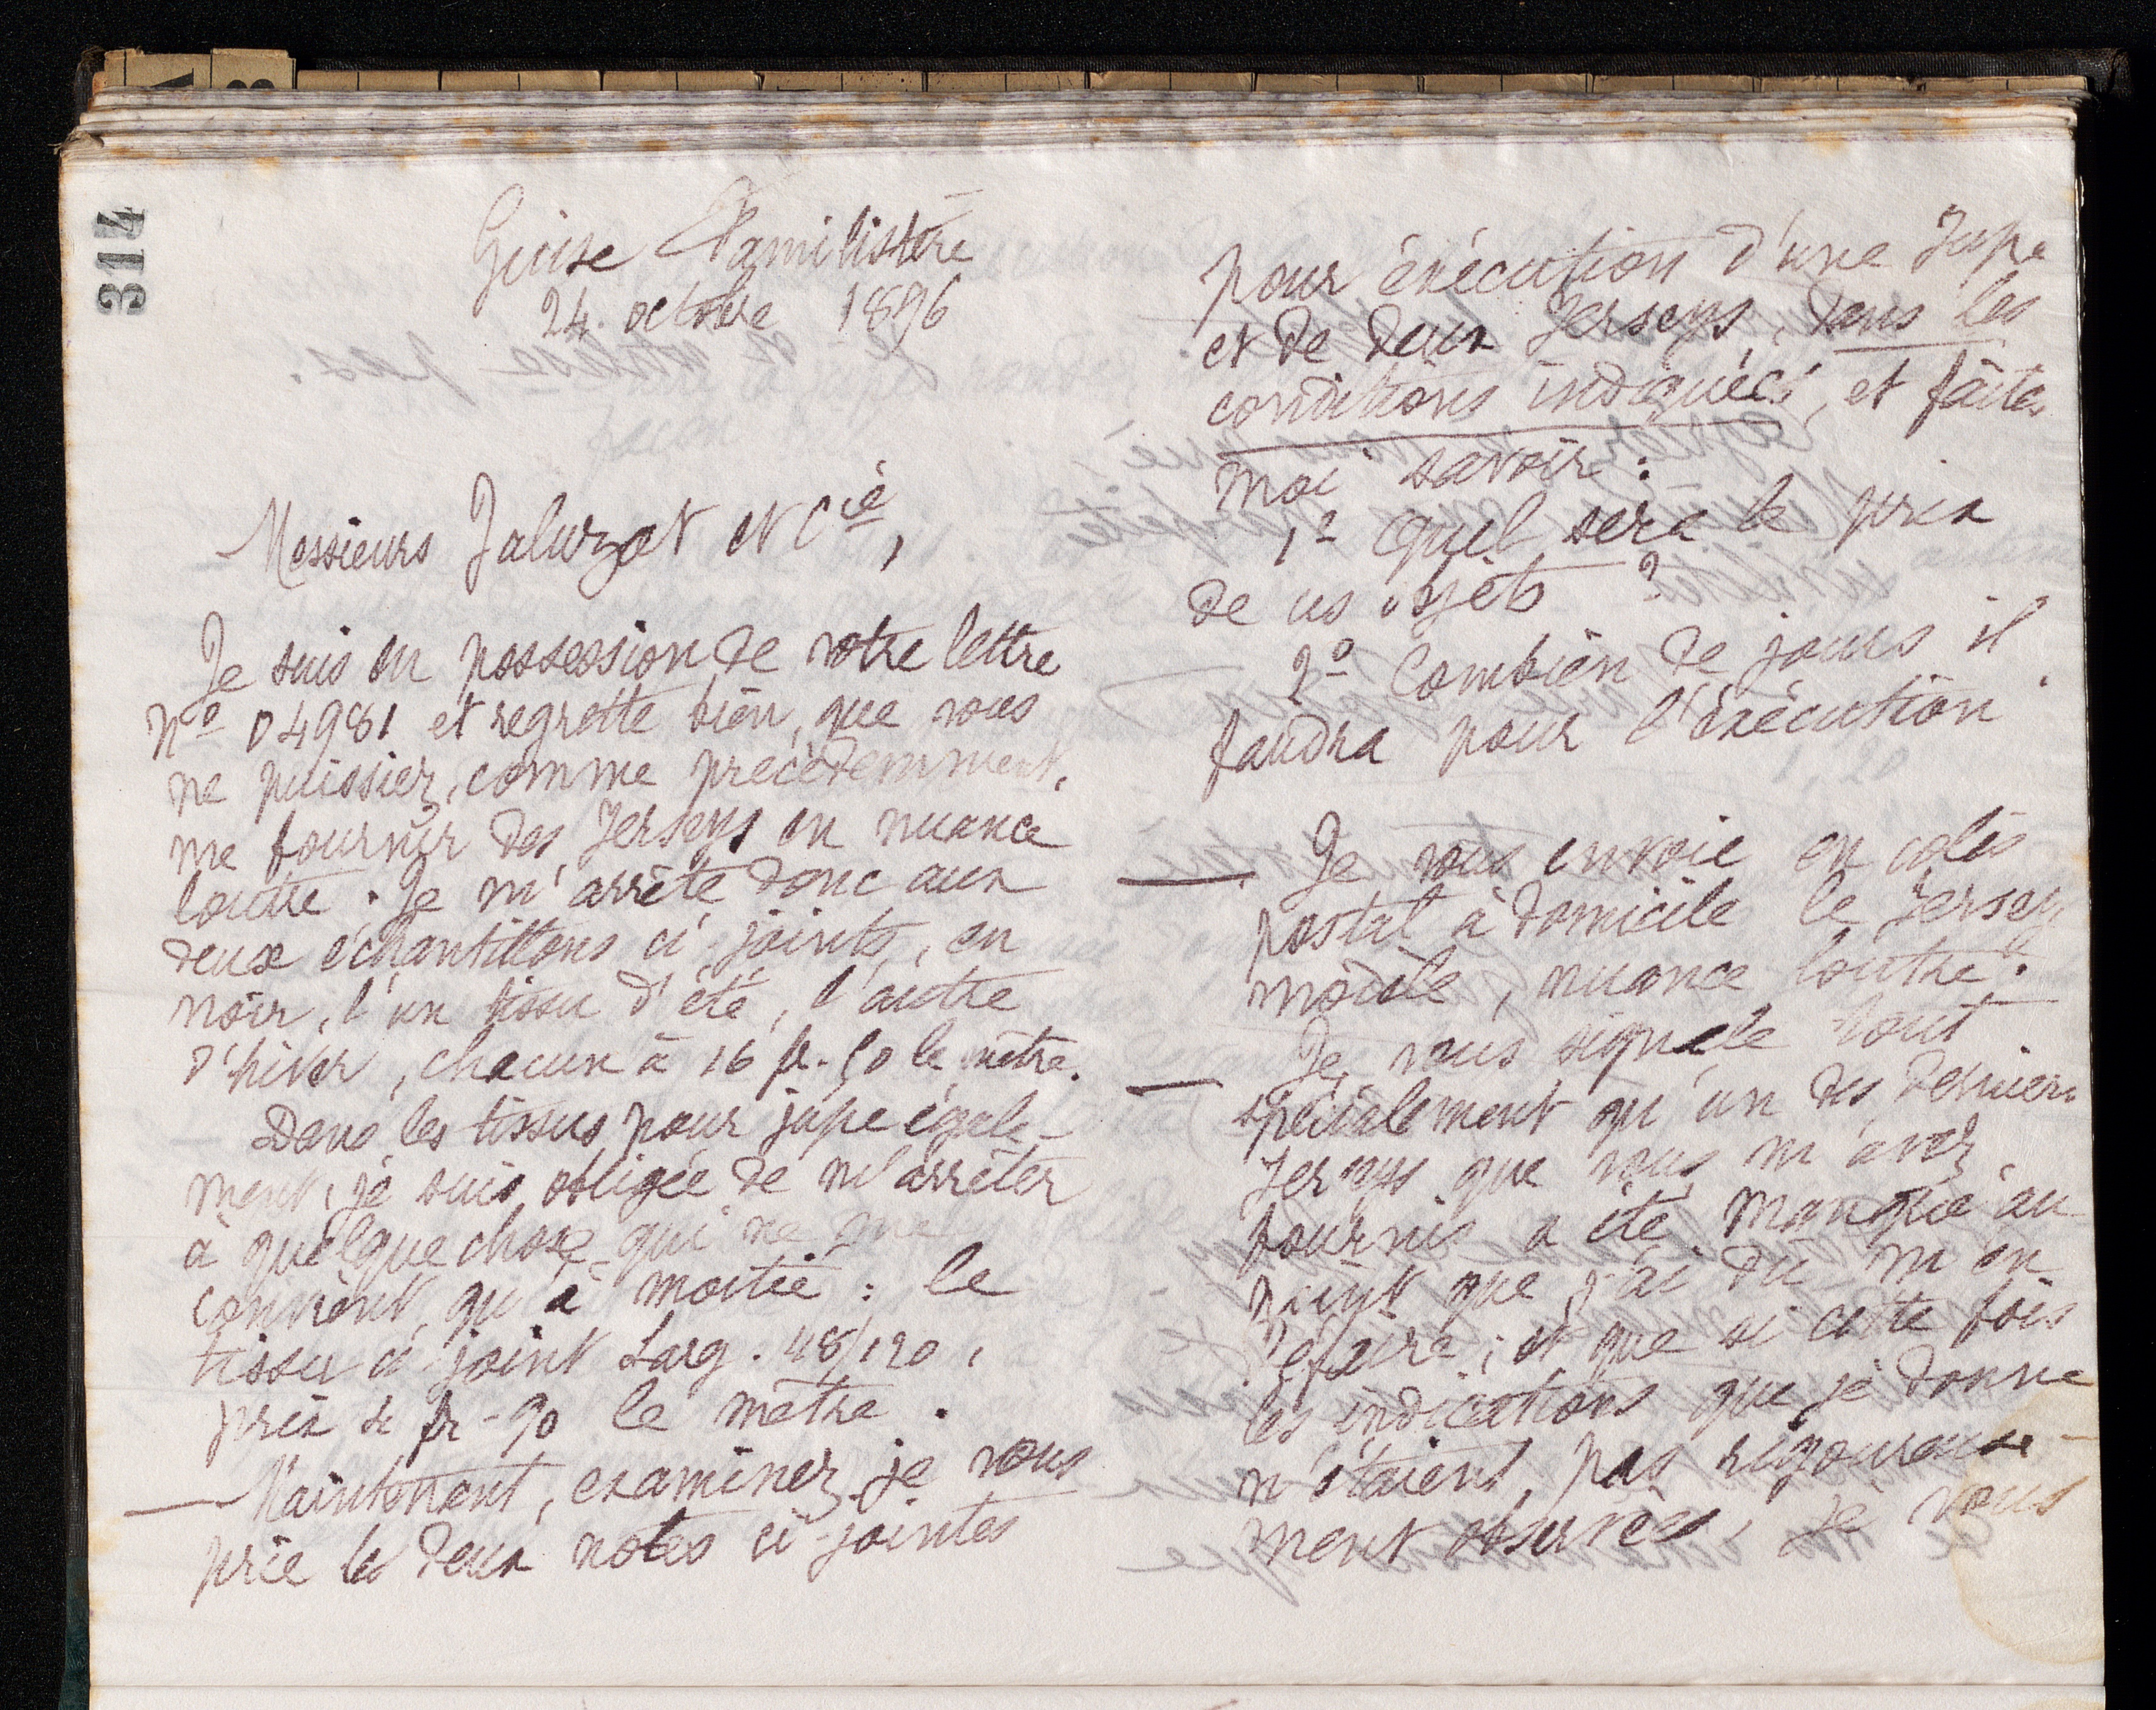 314
Guise Familistère
24 octobre 1896
Messieurs Jaluzot et Cie,
Je suis en possession de votre lettre
no 04981 et regrette bien, que vous
ne puissiez, comme précédemment,
me fournir des Jerseys en nuance
loutre. Je m'arrête donc aux
deux échantillons ci-joints, en
noir, l'un tissu d'été, l'autre
d'hiver, chacun à 16 fr. 50 le mètre.
Dans les tissus pour jupe égale-
ment, je suis obligée de m'arrêter
à quelque chose qui ne me
convient qu'à moitié : le
tissu ci-joint Larg. 48/120,
prix fr - 90 le mètre.
— Maintenant, examinez je vous
prie les deux notes ci-jointes
pour exécution d'une Jupe
et de deux Jerseys, dans les
conditions indiquées, et faites
moi savoir :
1o Quel sera le prix
de ces objets ?
2o Combien de jours il
faudra pour l'exécution
— Je vous envoie en colis
postal à domicile le Jersey
modèle, nuance loutre.
— Je vous signale tout
spécialement qu'un des derniers
Jerseys que vous m'avez
fournis a été manqué au
point que j'ai dû m'en
défaire ; et que si cette fois
les indications que je donne
n'étaient pas rigoureuse-
ment observées, je vous